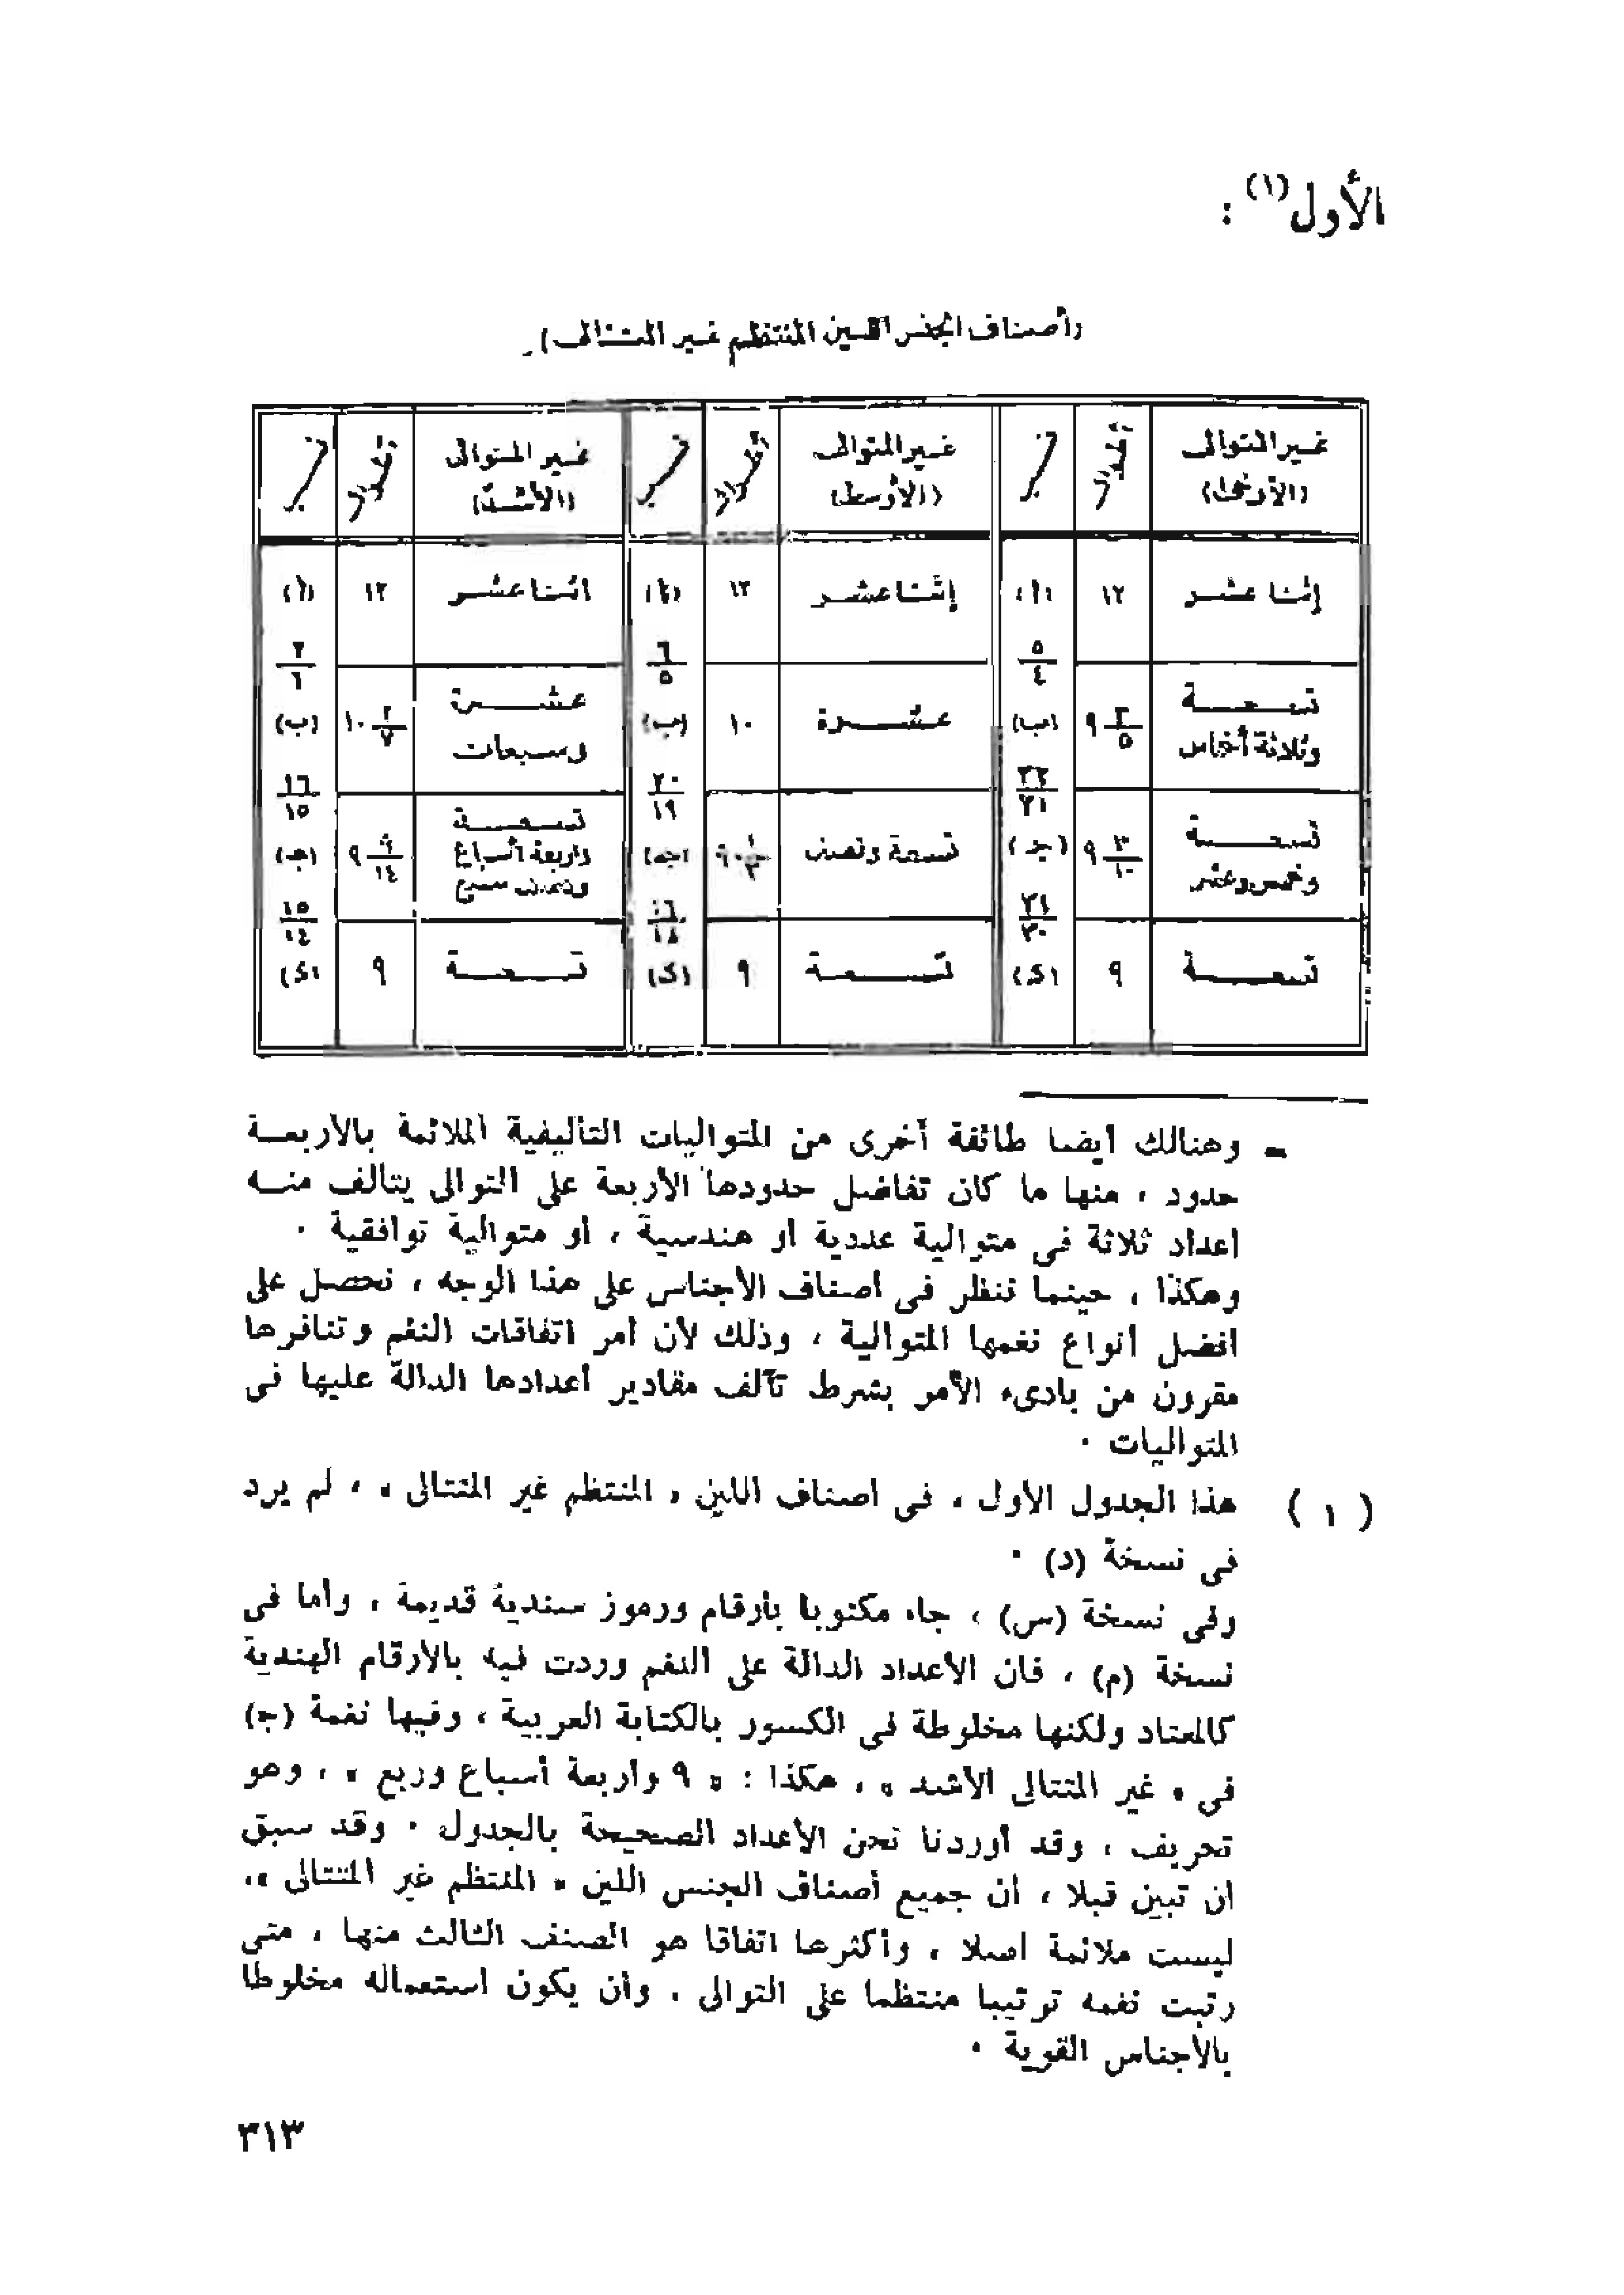 الأول (١) :
(أصناف الجنس اللين المنتظم غير المتتالى)
غير المتوالى (الأرخى) | أعداد | نسب | غير المتوالى (الأوسط) | أعداد | نسب | غير المتوالى (الأشد) | أعداد | نسب
إثنا عشر | ١٢ | (أ) | إثنا عشر | ١٢ | (أ) | اثنا عشر | ١٢ | (أ)
٥/٤ | ٦/٥ | ٧/٦
تسعة وثلاثة أخماس | ٩ ٣/٥ | (ب) | عشرة | ١٠ | (ب) | عشرة وسبعات | ١٠ ٢/٧ | (ب)
٣٢/٣١ | ٢٠/١٩ | ١٦/١٥
تسعة وخمس وعشر | ٩ ٣/١٠ | (جـ) | تسعة ونصف | ٩ ١/٢ | (جـ) | تسعة وأربعة أسباع ونصف سبع | ٩ ٩/١٤ | (جـ)
٣١/٣٠ | ١٩/١٨ | ١٥/١٤
تسعة | ٩ | (د) | تسعة | ٩ | (د) | تسعة | ٩ | (د)
- وهنالك أيضا طائفة أخرى من المتواليات التأليفية الملائمة بالأربعة
حدود ، منها ما كان تفاضل حدودها الأربعة على التوالى يتألف منه
أعداد ثلاثة فى متوالية عددية أو هندسية ، أو متوالية توافقية .
وهكذا ، حينما تنظر فى أصناف الأجناس على هذا الوجه ، تحصل على
أفضل أنواع نغمها المتوالية ، وذلك لأن أمر اتفاقات النغم وتنافرها
مقرون من بادىء الأمر بشرط تآلف مقادير أعدادها الدالة عليها فى
المتواليات .
(١) هذا الجدول الأول ، فى أصناف اللين « المنتظم غير المتتالى » ، لم يرد
فى نسخة (د) .
وفى نسخة (س) ، جاء مكتوبا بأرقام ورموز سندية قديمة ، وأما فى
نسخة (م) ، فان الأعداد الدالة على النغم وردت فيه بالأرقام الهندية
كالمعتاد ولكنها مخلوطة فى الكسور بالكتابة العربية ، وفيها نغمة (جـ)
فى « غير المتتالى الأشد » ، هكذا : « ٩ وأربعة أسباع وربع » ، وهو
تحريف ، وقد أوردنا نحن الأعداد الصحيحة بالجدول . وقد سبق
أن تبين قبلا ، أن جميع أصناف الجنس اللين « المنتظم غير المتتالى » ،
ليست ملائمة أصلا ، وأكثرها اتفاقا هو الصنف الثالث منها ، متى
رتبت نغمه ترتيبا منتظما على التوالى . وأن يكون استعماله مخلوطا
بالأجناس القوية .
٣١٣